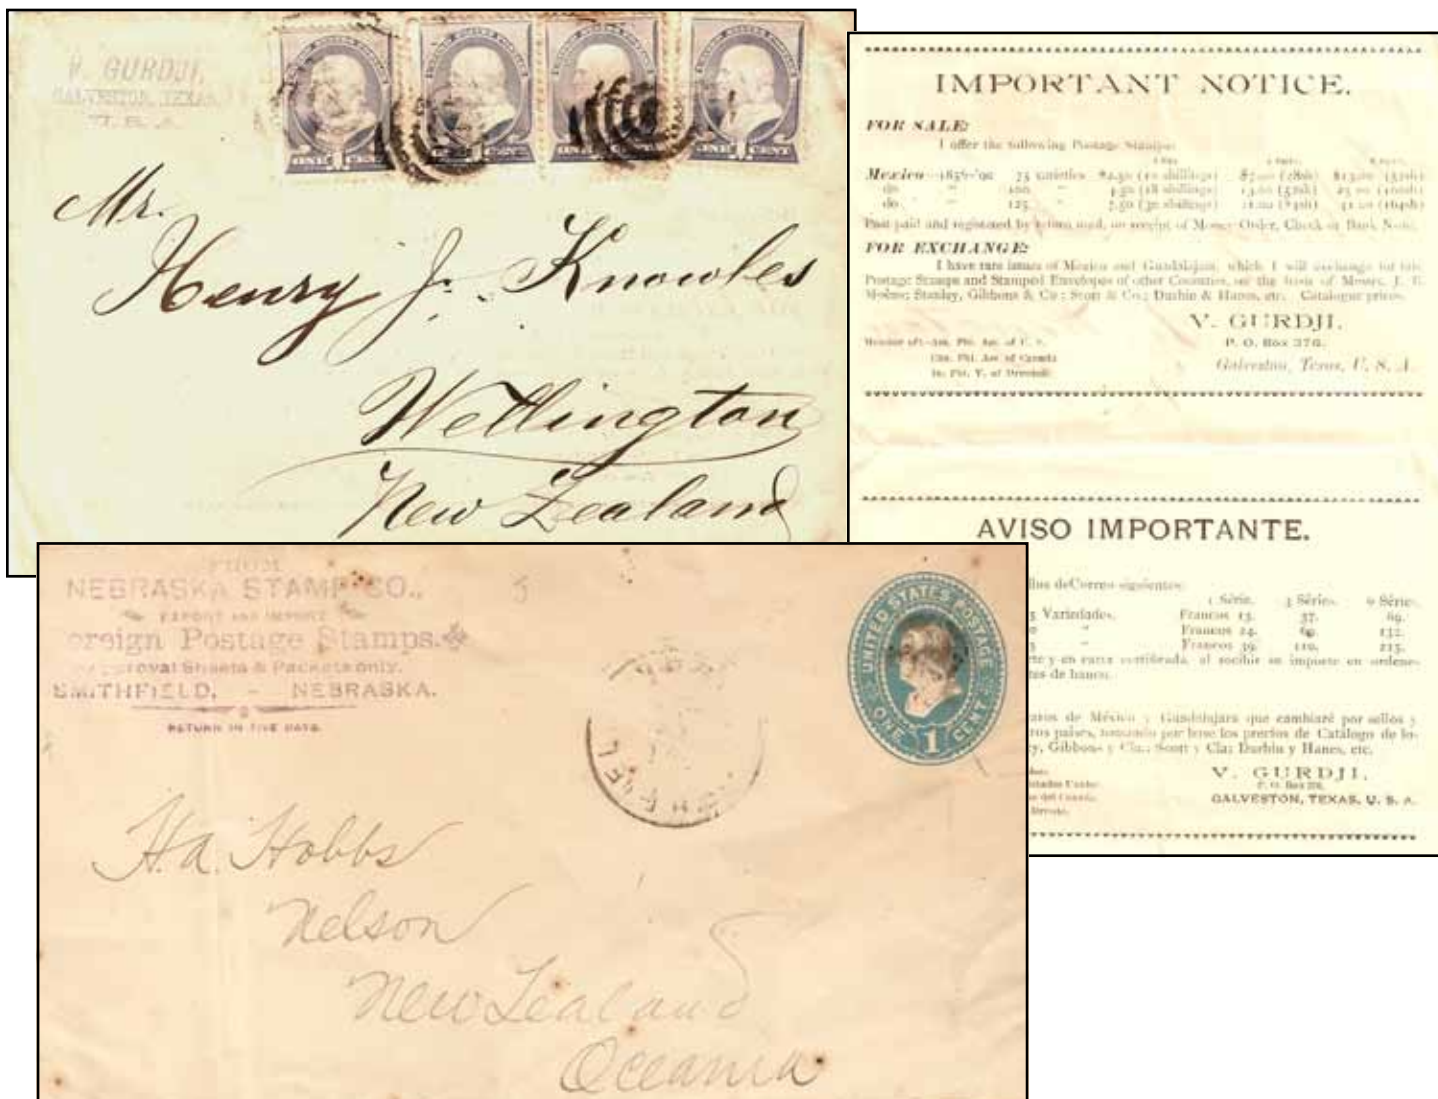 V. GURDJI,
GALVESTON, TEXAS,
U. S. A.
ONE 1 CENT
ONE CENT
ONE CENT
ONE 1 CENT
Mr.
Henry J. Knowles
Wellington
New Zealand
IMPORTANT NOTICE.
FOR SALE:
I offer the following Postage Stamps:
Mexico
do
do
Post paid and registered by return mail, on receipt of Money Order, Check or Bank Note.
FOR EXCHANGE:
I have rare issues of Mexico and Guadalajara, which I will exchange for
Postage Stamps and Stamped Envelopes of other Countries, on the basis of Messrs. J. B.
Moëns; Stanley, Gibbons & Co; Scott & Co; Durbin & Hanes, etc. Catalogue prices.
V. GURDJI.
P. O. Box 376.
Galveston, Texas, U. S. A.
AVISO IMPORTANTE.
de Correo siguientes:
1 Série. 3 Séries. 6 Séries.
Variedades. Francos 13. 37. 69.
Francos 24. 69. 132.
Francos 39. 110. 215.
y en carta certificada, al recibir su importe en ordenes
de banco.
de México y Guadalajara que cambiaré por sellos y
países, tomando por base los precios de Catálogo de
Gibbons y Cia.; Scott y Cia; Durbin y Hanes, etc.
V. GURDJI.
P. O. Box 376.
GALVESTON, TEXAS, U. S. A.
FROM
NEBRASKA STAMP CO.,
EXPORT AND IMPORT
oreign Postage Stamps.
Approval Sheets & Packets only.
SMITHFIELD, - NEBRASKA.
RETURN IN FIVE DAYS.
UNITED STATES POSTAGE
ONE 1 CENT
H. A. Hobbs
Nelson
New Zealand
Oceania